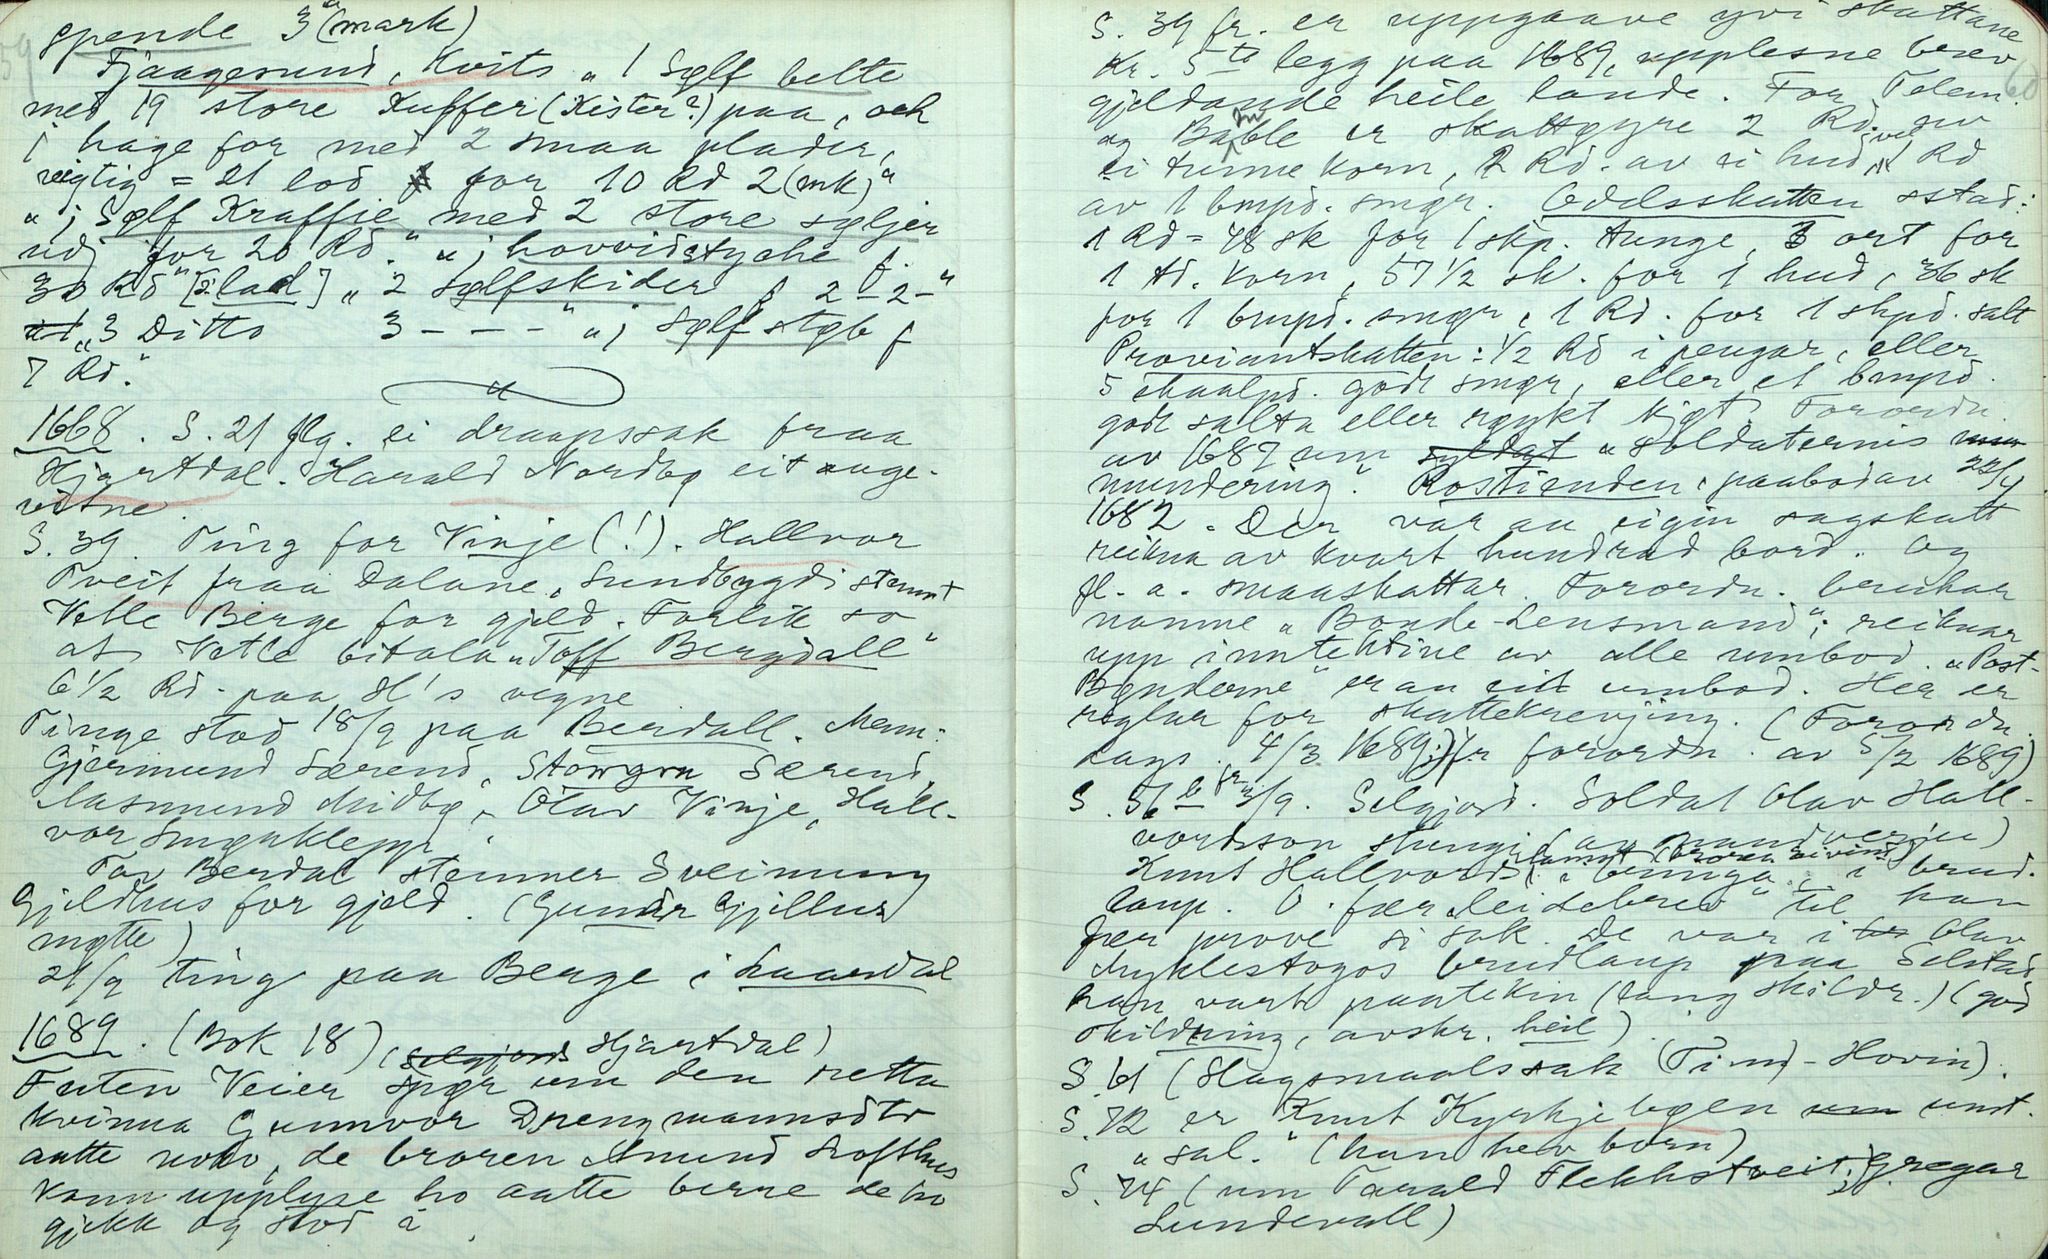 59
spende 3" (mark)
Fjaagesund, Kvits „1 Sølf belte
med 19 store Kuffer (Kister?) paa, och
j hage for med 2 smaa plader,
vegtig = 21 lod for 10 Rd 2 (mk)"
„j Sølf Kraffie" med 2 store søljer
udj for 20 Rd." „j hovvidstyche f.
30 Rd" [: lad] „2 sølfskider f 2 – 2 –"
„3 Ditto 3 – – –" „j Sølf støb f
7 Rd."
1668. S. 21 flg. ei draapssak fraa
Hjartdal. Harald Nordbø eit auge-
vitne.
S. 39. Ting for Vinje (!). Hallvor
Tveit fraa Dalane, Sundbygdi stemnt
Vetle Berge for gjeld. Forlik so
at Vetle bitala „Toff Bergdall"
6 1/2 Rd. paa H's vegne
Tinge stod 18/9 paa Berdall. Menn:
Gjermund Særend, Særend,
Aasmund Midbø, Olav Vinje, Hall-
vor Smørklepp.
Tov Berdal stemner Sveinung
Gjeldhus for gjeld. (Gunnar Gjellus
møtte)
21/9 ting paa Berge i Laardal
1689. (Bok 18) (Selgjord Hjartdal)
Futen Veier spør um den rette
kvinna Gunnvor Drengmannsdtr
aatte noko, de broren Amund Lofthus
kann upplyse ho aatte berre de ho
gjekk og stod i.
60
S. 39 fr. er uppgaave yvi skattane
Kr. 5te legg paa 1689, upplesne brev
gjeldande heile lande. For Telem.
og Bamble er skattgyre 2 Rd. av
ei tunne korn, 2 Rd. av ei hud, 1 Rd
av 1 bmpd. smør. Odelsskatten sstad:
1 Rd = 48 sk for 1 skp. tunge, 3 ort for
1 td. korn, 57 1/2 sk. for 1 hud, 36 sk
for 1 bmpd. smør, 1 Rd. for 1 skpd. salt
Proviantskatten: 1/2 Rd i pengar, eller
5 skaalpd. godt smør, eller et bmpd.
godt salta eller røykt kjøt. Forordn.
av 1687 um syldat „Soldaternis mun
mundering." Rostienden, paabodav 22/4
1682. Der var au eigin sagskatt
reikna av kvart hundrad bord. Og
fl. a. smaaskattar. Forordn. brukar
namne „Bonde-Lensmand"; reiknar
upp inntektine av alle umbod. „Post-
Bønderne" er au eit umbod. Her er
reglar for skattekrevjing. (Forordn.
dags. 4/3 1689; jfr forordn. av 5/2 1689)
S. 56 b fr 3/9. Selgjord. Soldat Olav Hall-
vordson stungi (av vande)
Knut Hallvords. „i bringa" i brud-
laup. O. fær „leidebrev" til han
fær prove si sak. De var i Olav
Myklestogos brudlaup paa Selstad
han vart paateken (lang skildr.) (god
skildring, avskr. heil)
S. 61 (Slagsmaalssak (Tinn – Hovin).
S. 72 er Knut Kyrkjebøen um umt.
„sal." (han hev born)
S. 74 (um Tarald Flekkstveit, Gregar
Lundevall)